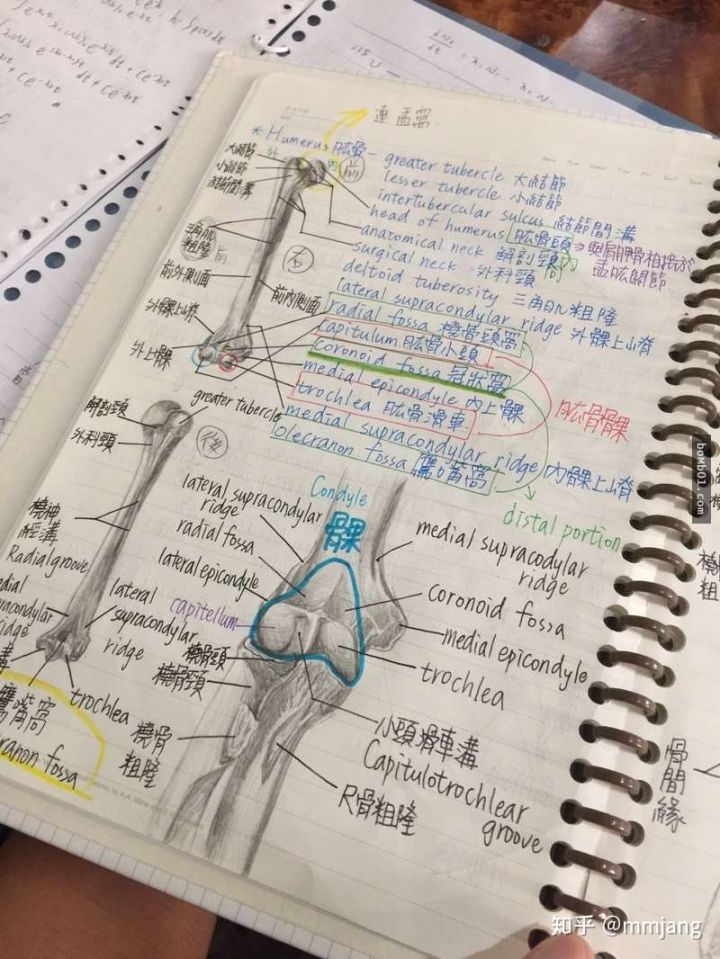 連 盂窩
* Humerus 肱骨 -
前
greater tubercle 大結節
lesser tubercle 小結節
intertubercular sulcus 結節間溝
head of humerus 肱骨頭 → 與肩胛骨相接於
盂肱關節
anatomical neck 解剖頸
surgical neck 外科頸
deltoid tuberosity 三角肌粗隆
lateral supracondylar ridge 外髁上山脊
radial fossa 橈骨頭窩
capitulum 肱骨小頭
coronoid fossa 冠狀窩
medial epicondyle 內上髁
trochlea 肱骨滑車
medial supracondylar ridge 內髁上山脊
olecranon fossa 鷹嘴窩
肱骨髁
distal portion
大結節
小結節
結節間溝
粗隆
前外側面
右
前內側面
外髁上山脊
外上髁
解剖頸
外科頸
greater tubercle
後
橈神
經溝
Radial groove
lateral
supracondylar
ridge
trochlea
鷹嘴窩
Condyle
髁
lateral supracondylar
ridge
radial fossa
lateral epicondyle
capitellum
橈骨頭
橈骨頸
橈骨
粗隆
medial supracodylar
ridge
coronoid fossa
medial epicondyle
trochlea
小頭滑車溝
Capitulotrochlear
groove
尺骨粗隆
骨間緣
bomb01.com
知乎 @mmjang